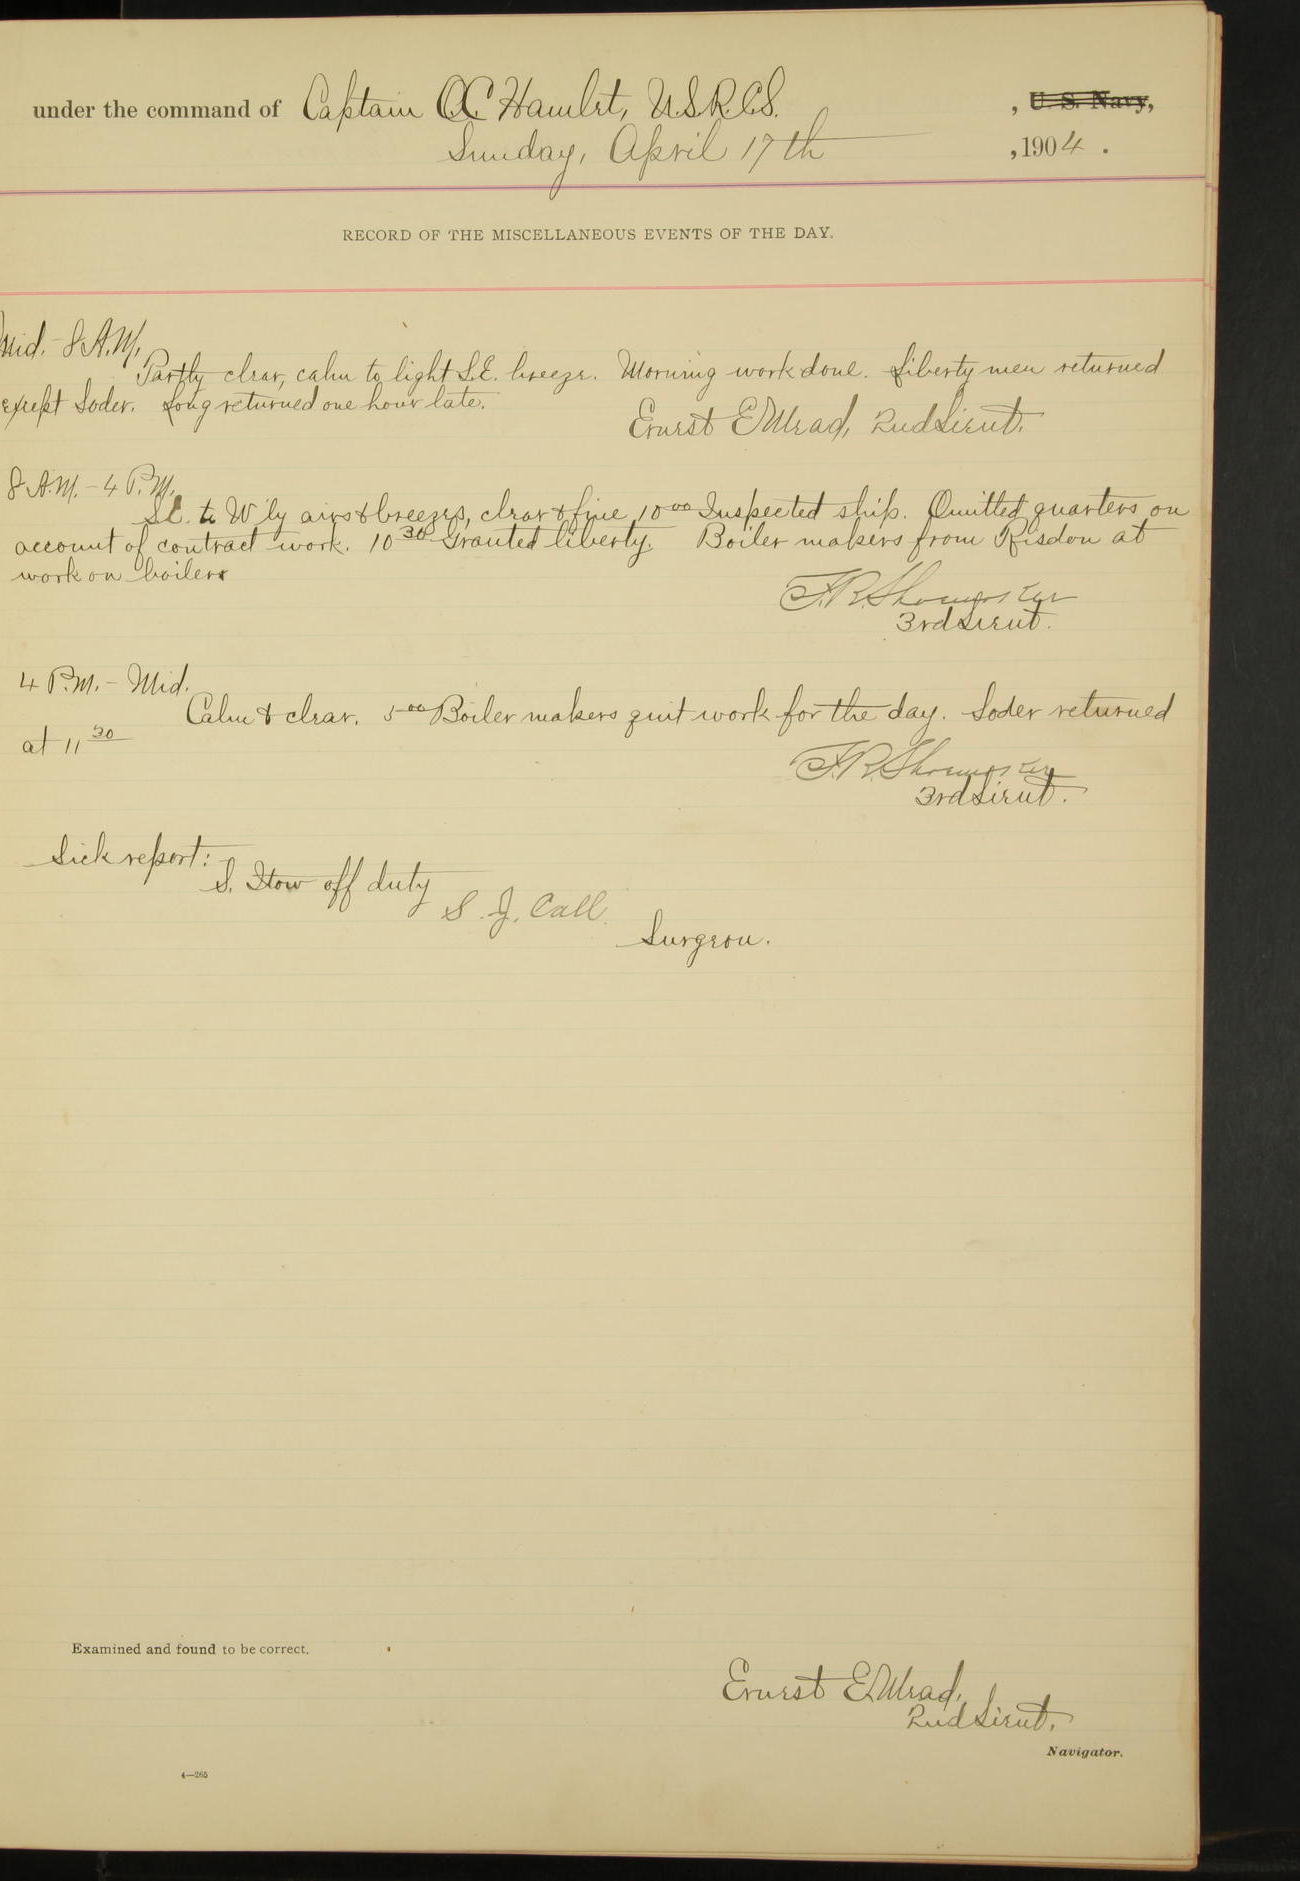 under the command of Captain O.C. Hamlet, U.S.R.C.S. , U. S. Navy,
Sunday, April 17th , 1904 .
RECORD OF THE MISCELLANEOUS EVENTS OF THE DAY.
Mid. - 8 A.M.
Partly clear, calm to light S.E. breeze. Morning work done. Liberty men returned
except Soder. Long returned one hour late.
Ernest E. Mead, 2nd Lieut.
8 A.M. - 4 P.M.
SE. to W'ly airs & breezes, clear & fine 10 00 Inspected ship. Omitted quarters on
account of contract work. 10 30 Granted liberty. Boiler makers from Risdon at
work on boilers
F.R. Shoemaker
3rd Lieut.
4 P.M. - Mid.
Calm & clear. 5 00 Boiler makers quit work for the day. Soder returned
at 11 30
F.R. Shoemaker
3rd Lieut.
Sick report:
S. Itow off duty
S. J. Call.
Surgeon.
Examined and found to be correct.
Ernest E. Mead,
2nd Lieut.
Navigator.
4—265